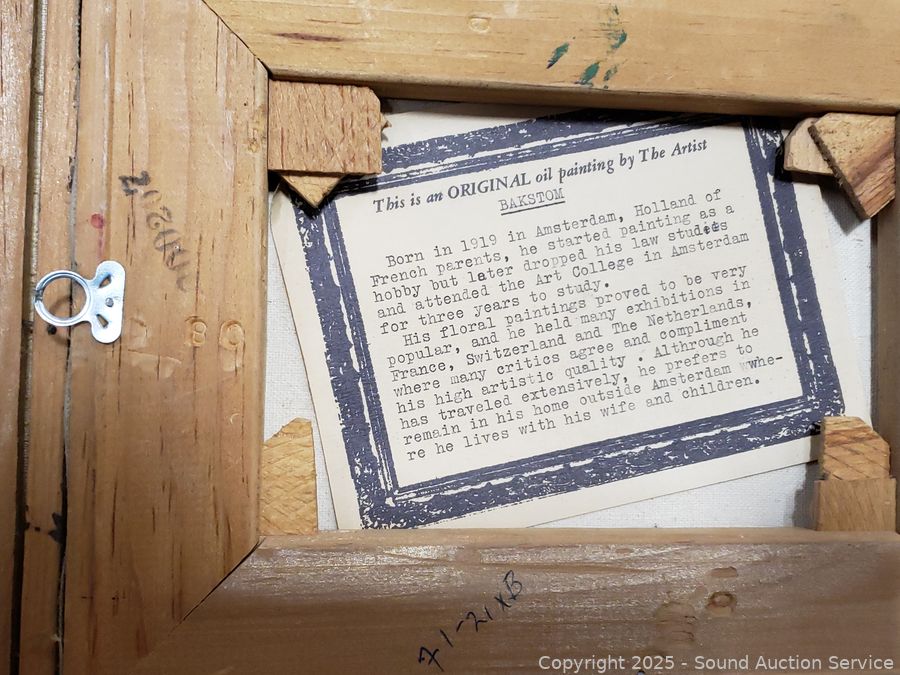 This is an ORIGINAL oil painting by The Artist
BAKSTOM
Born in 1919 in Amsterdam, Holland of
French parents, he started painting as a
hobby but later dropped his law studies
and attended the Art College in Amsterdam
for three years to study.
His floral paintings proved to be very
popular, and he held many exhibitions in
France, Switzerland and The Netherlands,
where many critics agree and compliment
his high artistic quality . Althrough he
has traveled extensively, he prefers to
remain in his home outside Amsterdam whe-
re he lives with his wife and children.
71-21XB
Copyright © 2025 - Sound Auction Service